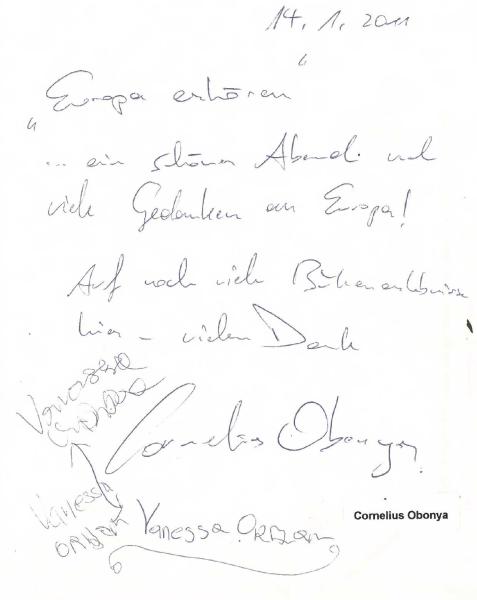 14. 1. 2011
"Europa erhören"
... ein schöner Abend und
viele Gedanken an Europa!
Auf noch viele Bühnenerlebnisse
hier – vielen Dank
Vanessa
Cornelius Obonya
Vanessa
Vanessa
Cornelius Obonya